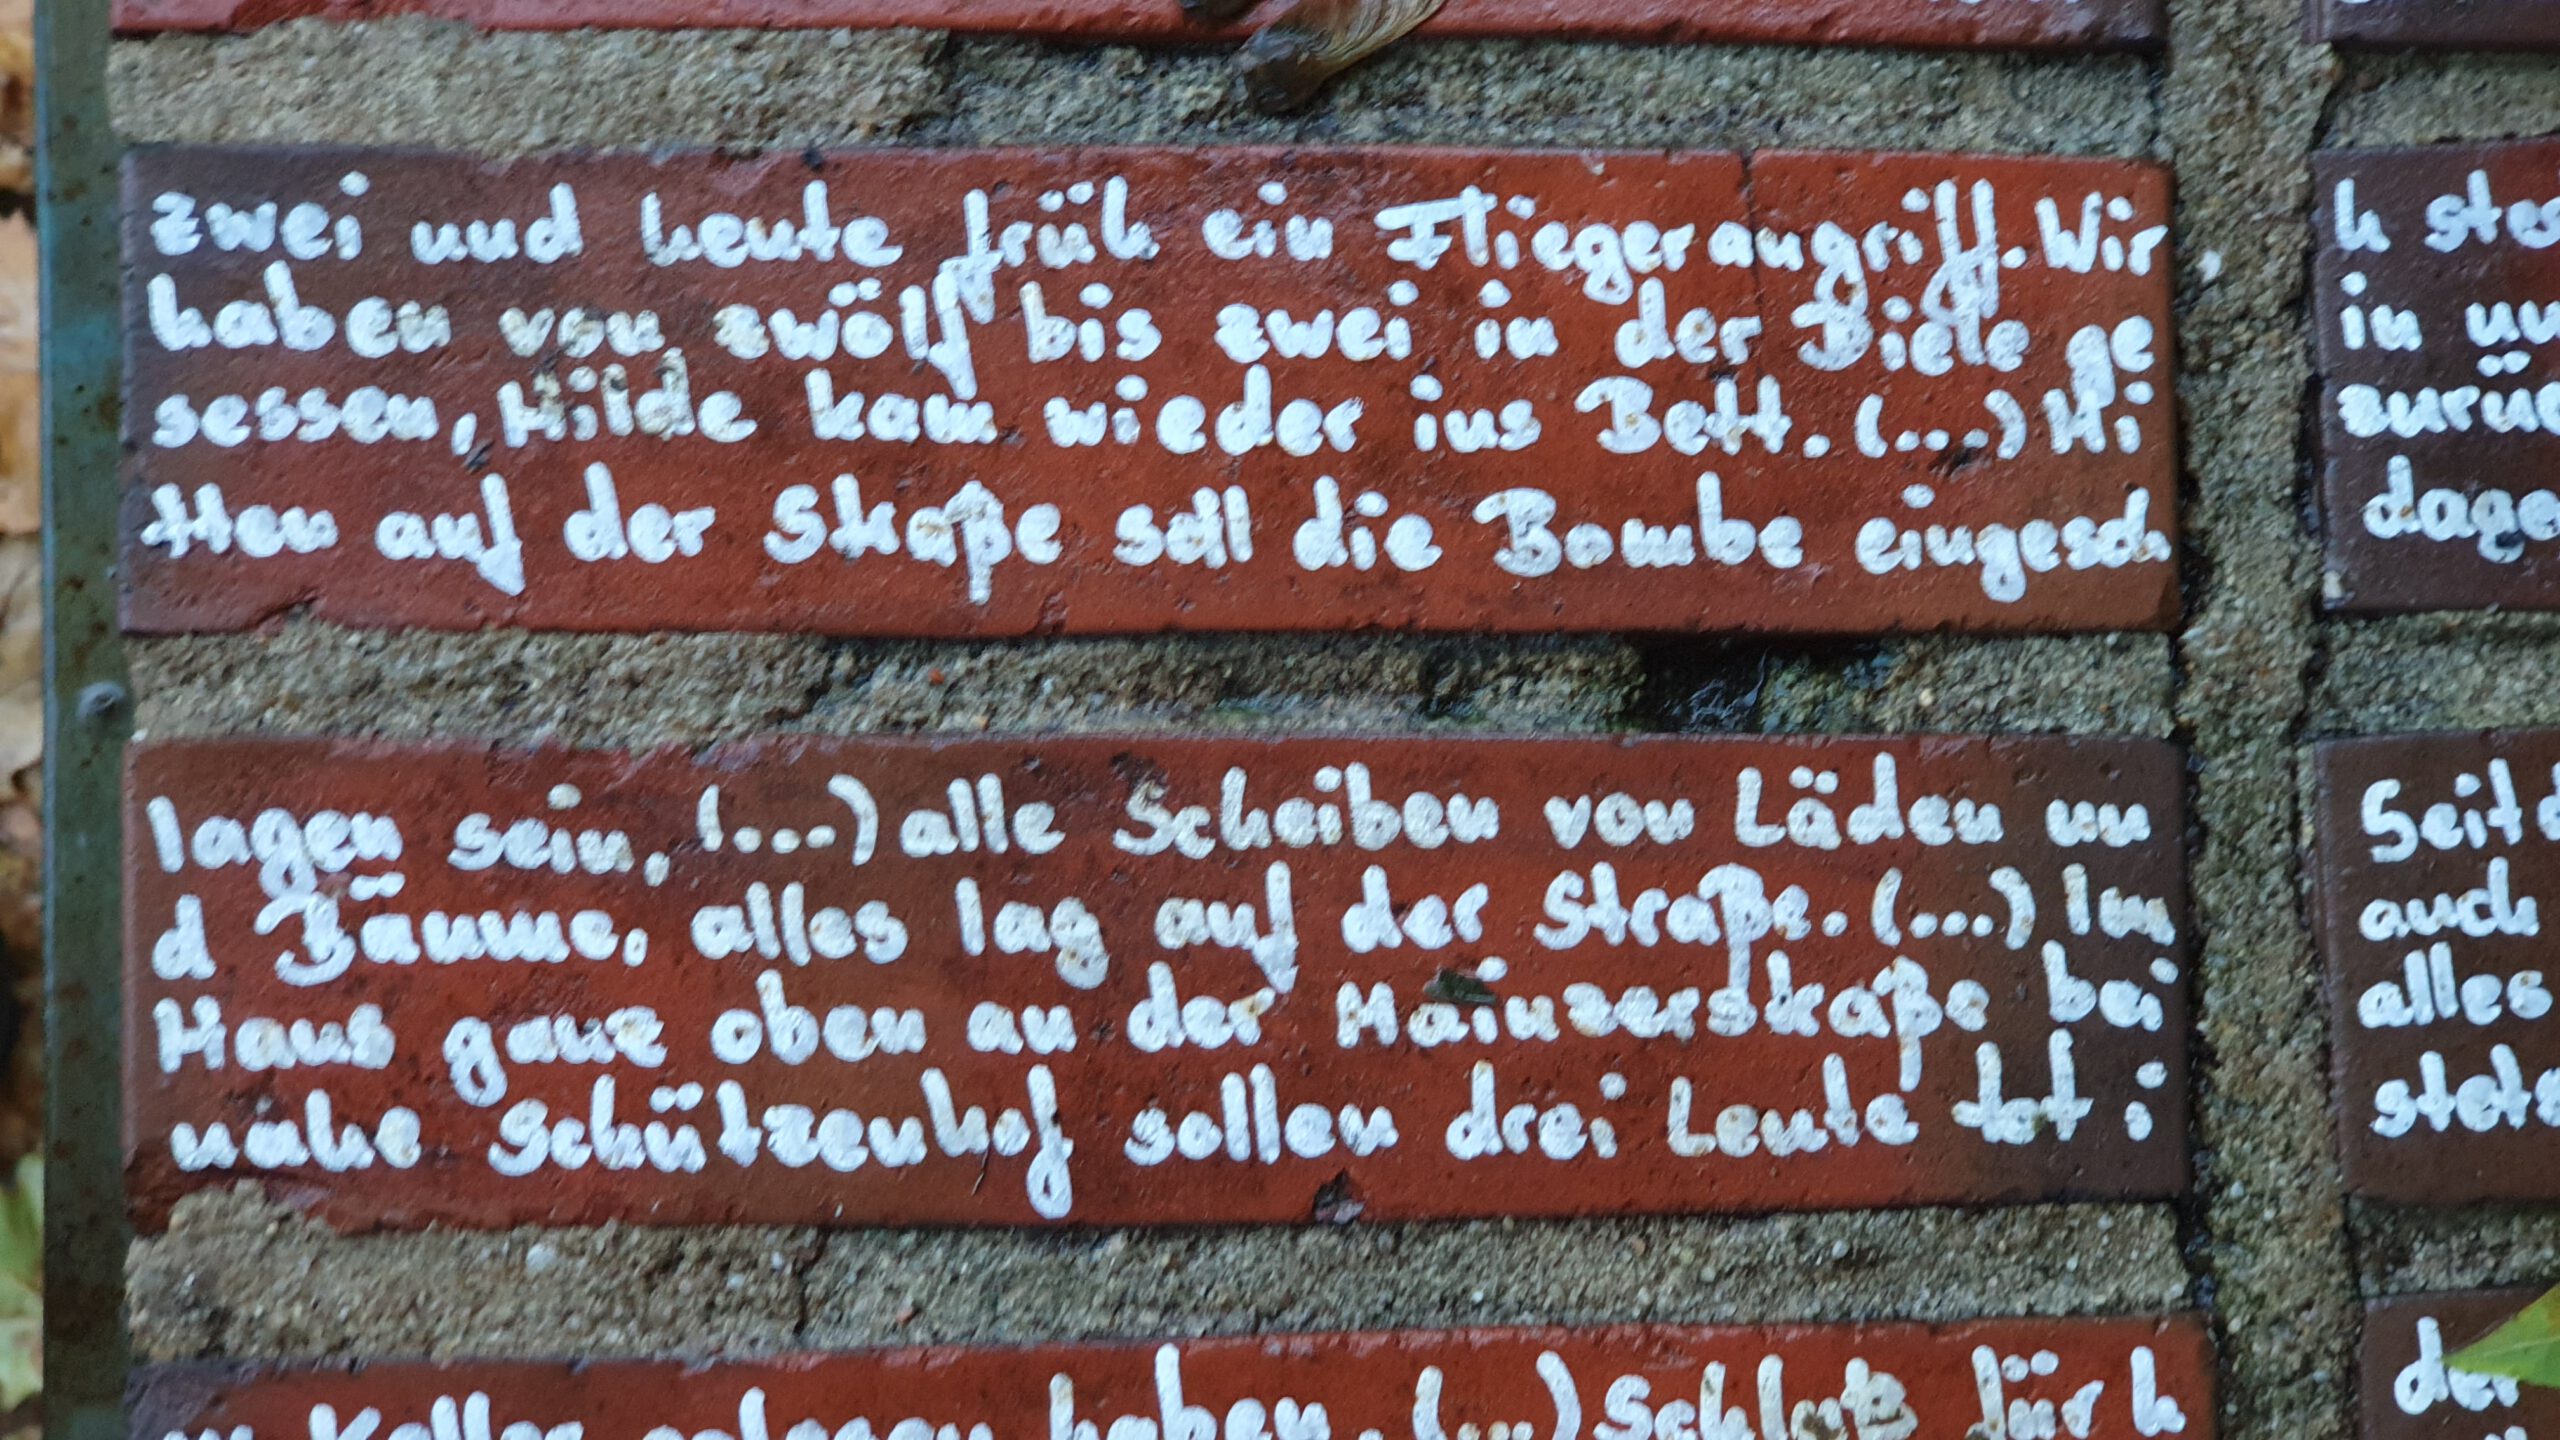 zwei und heute früh ein Fliegerangriff. Wir
haben von zwölf bis zwei in der Diele ge
sessen, Hilde kam wieder ins Bett. (...) Mi
tten auf der Straße soll die Bombe eingesch
lagen sein, (...) alle Scheiben von Läden un
d Bäume, alles lag auf der Straße. (...) Im
Haus ganz oben an der Mainzerstraße bei
nahe Schützenhof sollen drei Leute tot i
Keller gelegen haben. (...) Schluß für h
h
in
dage
Seit
auch
alles